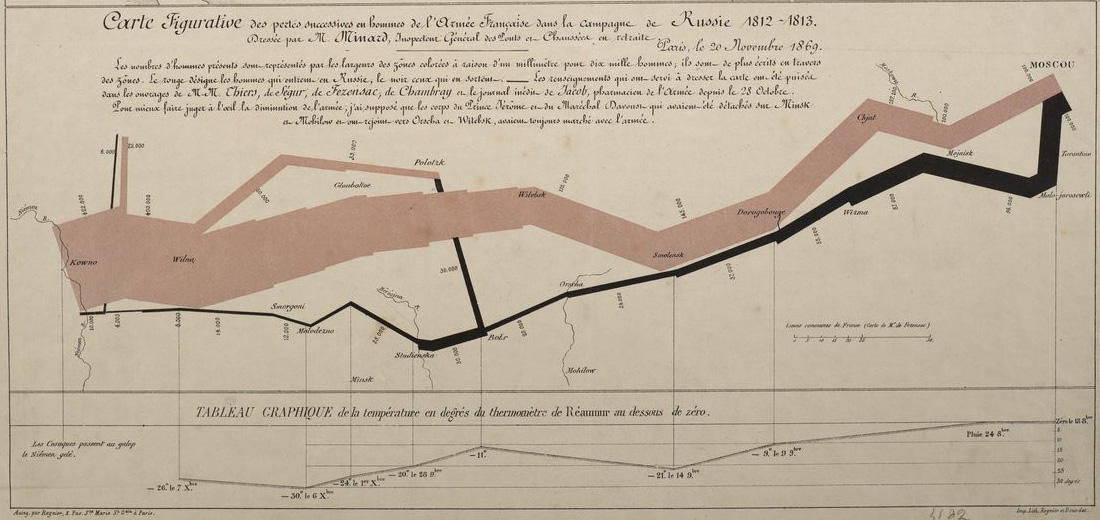 Carte Figurative des pertes successives en hommes de l'Armée Française dans la campagne de Russie 1812-1813.
Dressée par M. Minard, Inspecteur Général des Ponts et Chaussées en retraite
Paris, le 20 Novembre 1869.
Les nombres d'hommes présents sont représentés par les largeurs des zônes colorées à raison d'un millimètre pour dix mille hommes; ils sont de plus écrits en travers
des zônes. Le rouge désigne les hommes qui entrent en Russie, le noir ceux qui en sortent. Les renseignements qui ont servi à dresser la carte ont été puisés
dans les ouvrages de M.M. Thiers, de Ségur, de Fezensac, de Chambray et le journal inédit de Jacob, pharmacien de l'Armée depuis le 28 Octobre.
Pour mieux faire juger à l'œil la diminution de l'armée, j'ai supposé que les corps du Prince Jérôme et du Maréchal Davoust qui avaient été détachés sur Minsk
et Mohilow et ont rejoint vers Orscha et Witebsk, avaient toujours marché avec l'armée.
MOSCOU
100.000
100.000
Chjat
Mojaisk
Tarantino
Malo-jarosewli
6.000
22.000
33.000
Polotzk
Gloubokoe
60.000
Witebsk
Dorogobouge
Wizma
55.000
37.000
24.000
Niémen R.
422.000
400.000
Kowno
Wilna
Smolensk
145.000
30.000
Orscha
Smorgoni
Molodezno
Bérézina R.
Studienska
Bobr
Minsk
Mohilow
10.000
4.000
8.000
12.000
50.000
Lieues communes de France (Carte de M. de Fezensac)
TABLEAU GRAPHIQUE de la température en degrés du thermomètre de Réaumur au dessous de zéro.
Les Cosaques passent au galop
le Niémen gelé.
Zéro le 18 8.bre
Pluie 24 8.bre
5
10
15
20
25
30 degrés
— 9.° le 9 9.bre
— 21.° le 14 9.bre
— 11.°
— 20.° le 28 9.bre
— 24.° le 1.er X.bre
— 30.° le 6 X.bre
— 26.° le 7 X.bre
Autog. par Regnier, 8. Pas. S.te Marie S.t G.ain à Paris.
Imp. Lith. Regnier et Dourdet.